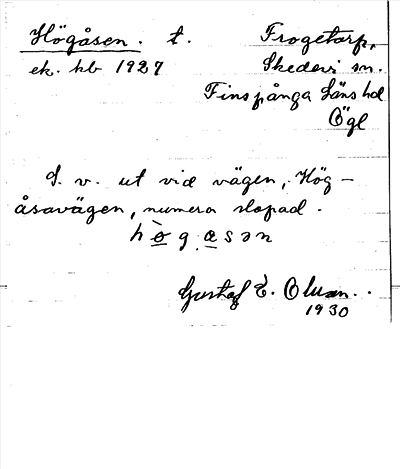 Högåsen. t. Frogetorp,
ek. kb 1927 Skedevi sn.
Finspånga Läns hd
Ögl
S. v. ut vid vägen, Hög-
åsavägen, numera slopad.
Gustaf E. Olson.
1930